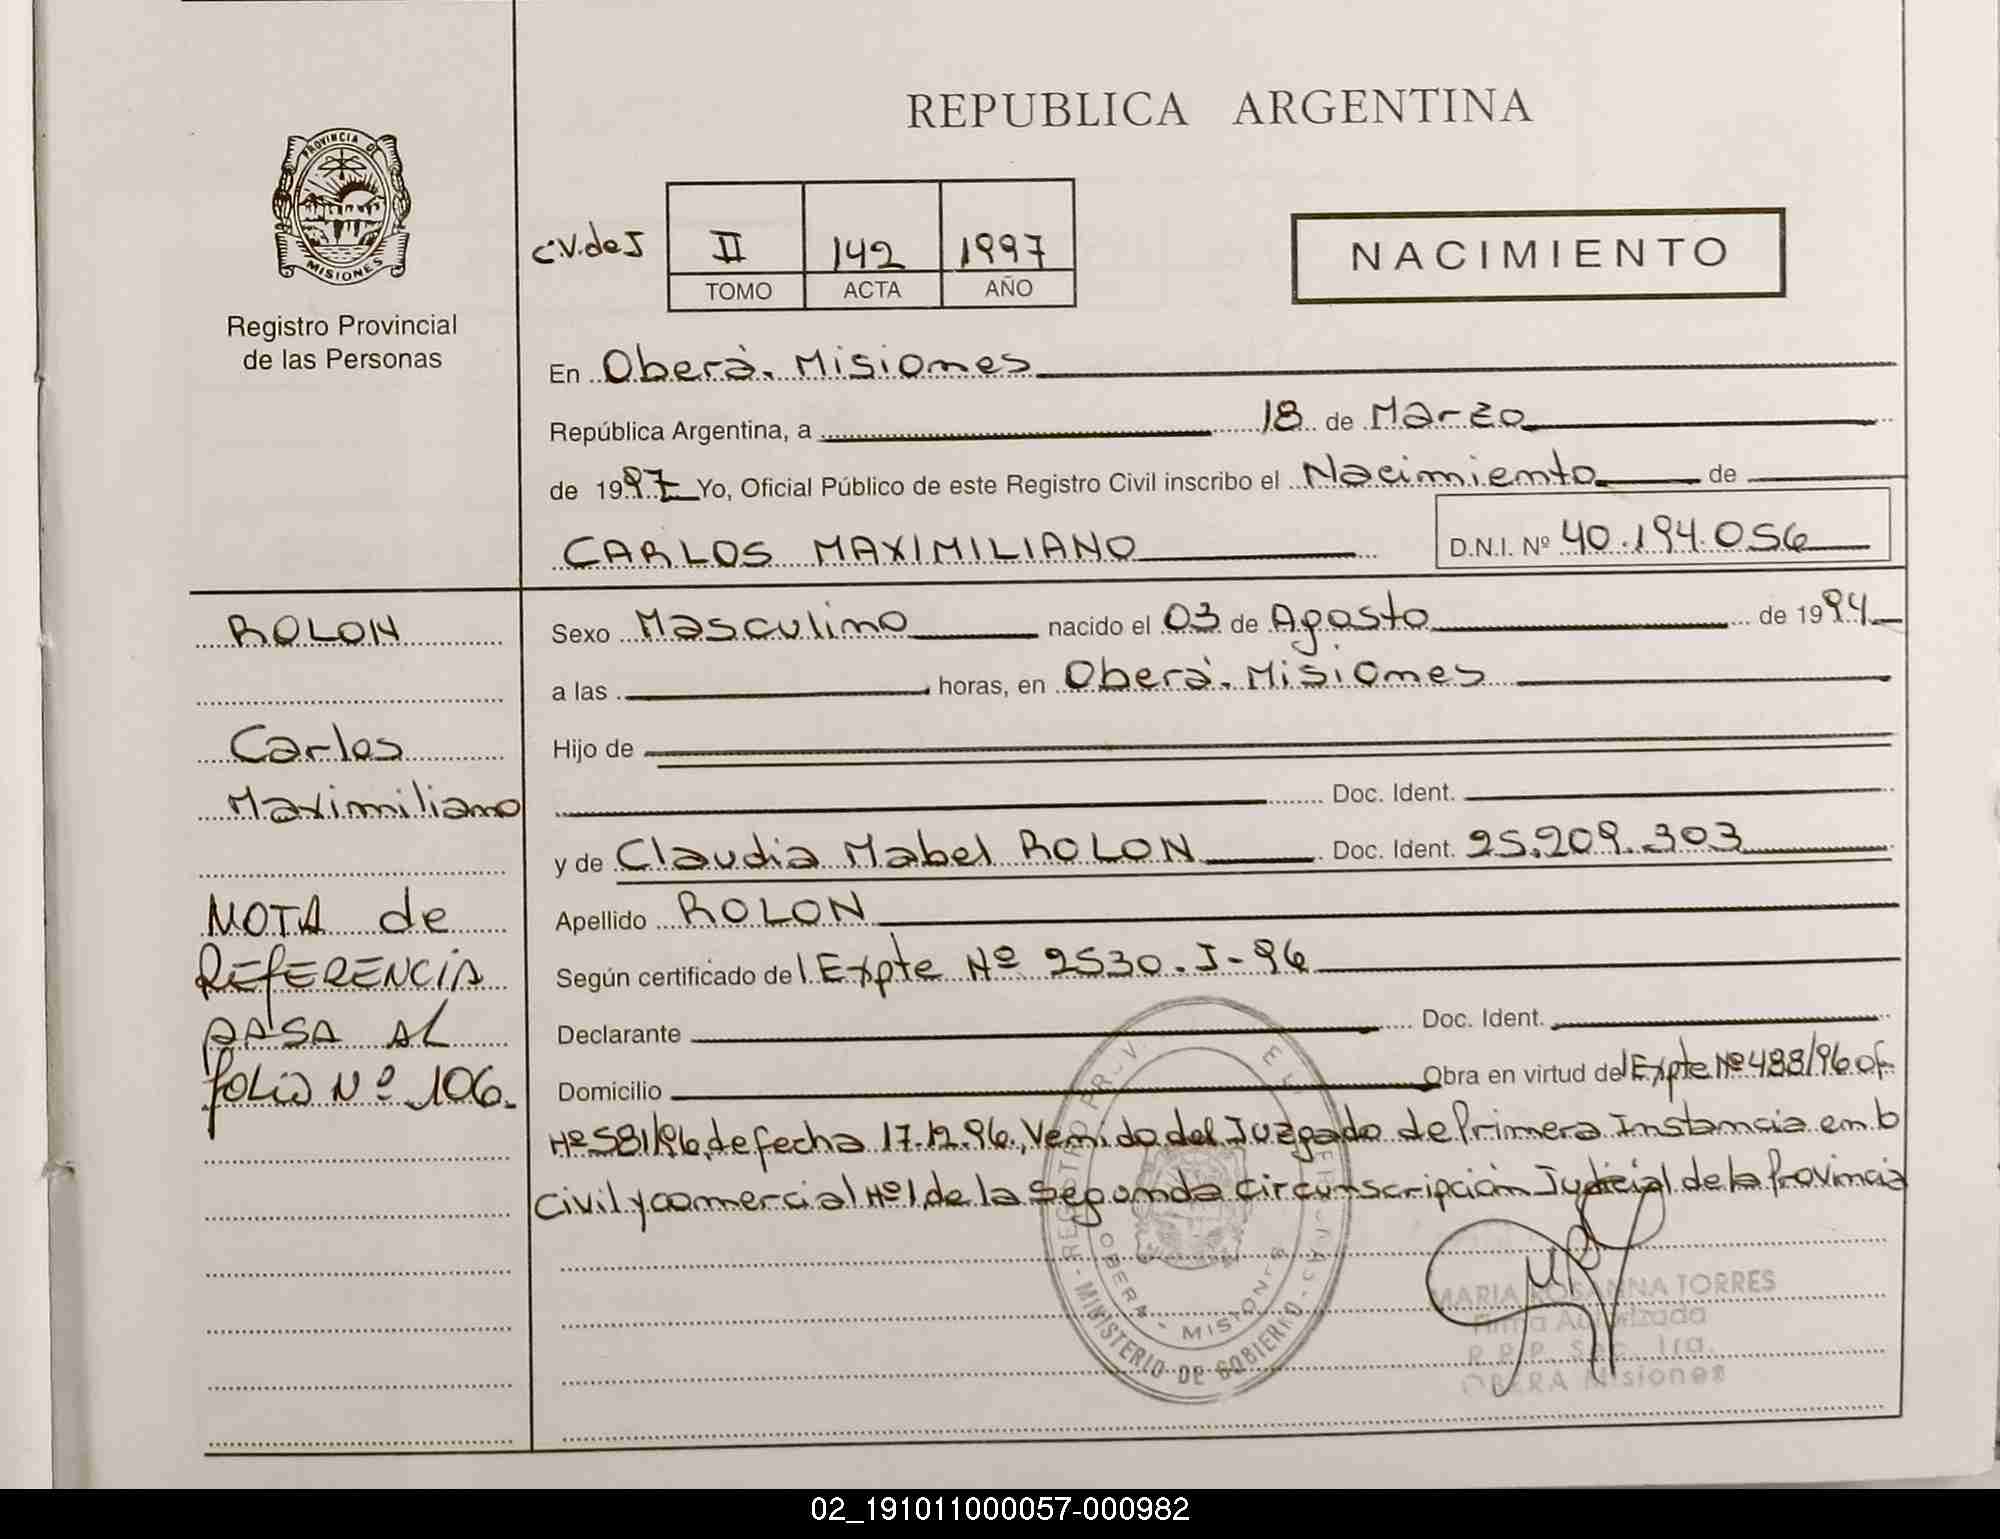 REPUBLICA ARGENTINA
PROVINCIA DE
MISIONES
Registro Provincial
de las Personas
C.V.deJ
II 142 1997
TOMO ACTA AÑO
NACIMIENTO
En Oberà. Misiones
República Argentina, a 18 de Marzo
de 1997 Yo, Oficial Público de este Registro Civil inscribo el Nacimiento de
CARLOS MAXIMILIANO D.N.I. Nº 40.194.056
ROLON
Carlos
Maximiliano
NOTA de
REFERENCIA
PASA AL
folio Nº 106.
Sexo Masculino nacido el 03 de Agosto de 1994
a las horas, en Oberà. Misiones
Hijo de
Doc. Ident.
y de Claudia Mabel ROLON Doc. Ident. 25.209.303
Apellido ROLON
Según certificado del Expte Nº 2530.J-96
Declarante Doc. Ident.
Domicilio Obra en virtud del Expte Nº 488/96 of
Nº581/96, de fecha 17.12.96., Venido del Juzgado de Primera Instancia en lo
Civil y comercial Nº1, de la Segunda Circunscripción Judicial de la Provincia
REGISTRO
OBERA - MISIONES
MINISTERIO DE GOBIERNO
MARIA ROSANNA TORRES
Firma Autorizada
R.P.P. Sec. 1ra.
OBERA Misiones
02_191011000057-000982